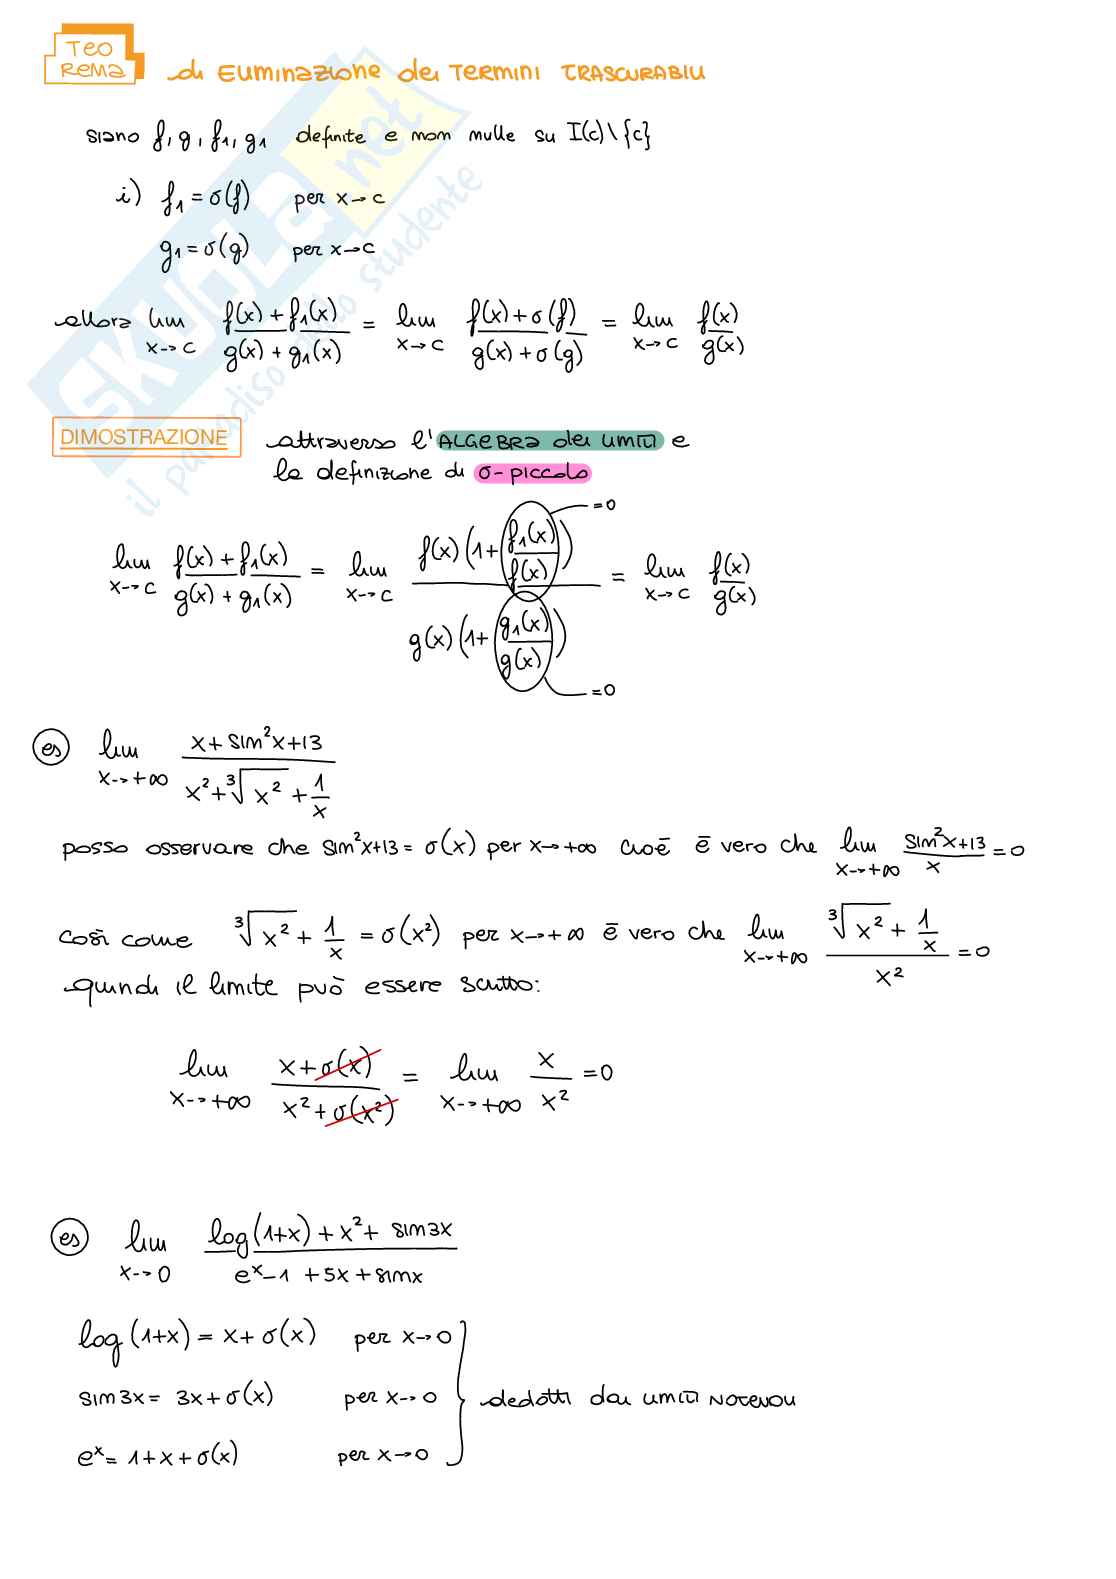 TEOREMA di ELIMINAZIONE dei TERMINI TRASCURABILI
siano f, g, f₁, g₁ definite e non nulle su I(c)\{c}
i) f₁ = σ(f) per x→c
g₁ = σ(g) per x→c
allora lim x→c (f(x)+f₁(x))/(g(x)+g₁(x)) = lim x→c (f(x)+σ(f))/(g(x)+σ(g)) = lim x→c f(x)/g(x)
DIMOSTRAZIONE attraverso l'ALGEBRA dei limiti e
la definizione di σ-piccolo
lim x→c (f(x)+f₁(x))/(g(x)+g₁(x)) = lim x→c (f(x)(1+f₁(x)/f(x)))/(g(x)(1+g₁(x)/g(x))) = lim x→c f(x)/g(x)
=0
=0
es lim x→+∞ (x+sin²x+13)/(x²+∛x²+1/x)
posso osservare che sin²x+13 = σ(x) per x→+∞ cioē ē vero che lim x→+∞ (sin²x+13)/x = 0
così come ∛x² + 1/x = σ(x²) per x→+∞ ē vero che lim x→+∞ (∛x²+1/x)/x² = 0
quindi il limite può essere scritto:
lim x→+∞ (x+σ(x))/(x²+σ(x²)) = lim x→+∞ x/x² = 0
es lim x→0 (log(1+x)+x²+sin3x)/(eˣ-1+5x+sinx)
log(1+x) = x+σ(x) per x→0
sin3x = 3x+σ(x) per x→0 dedotti dai limiti NOTEVOLI
eˣ = 1+x+σ(x) per x→0
SKUOLA.net
il paradiso dello studente